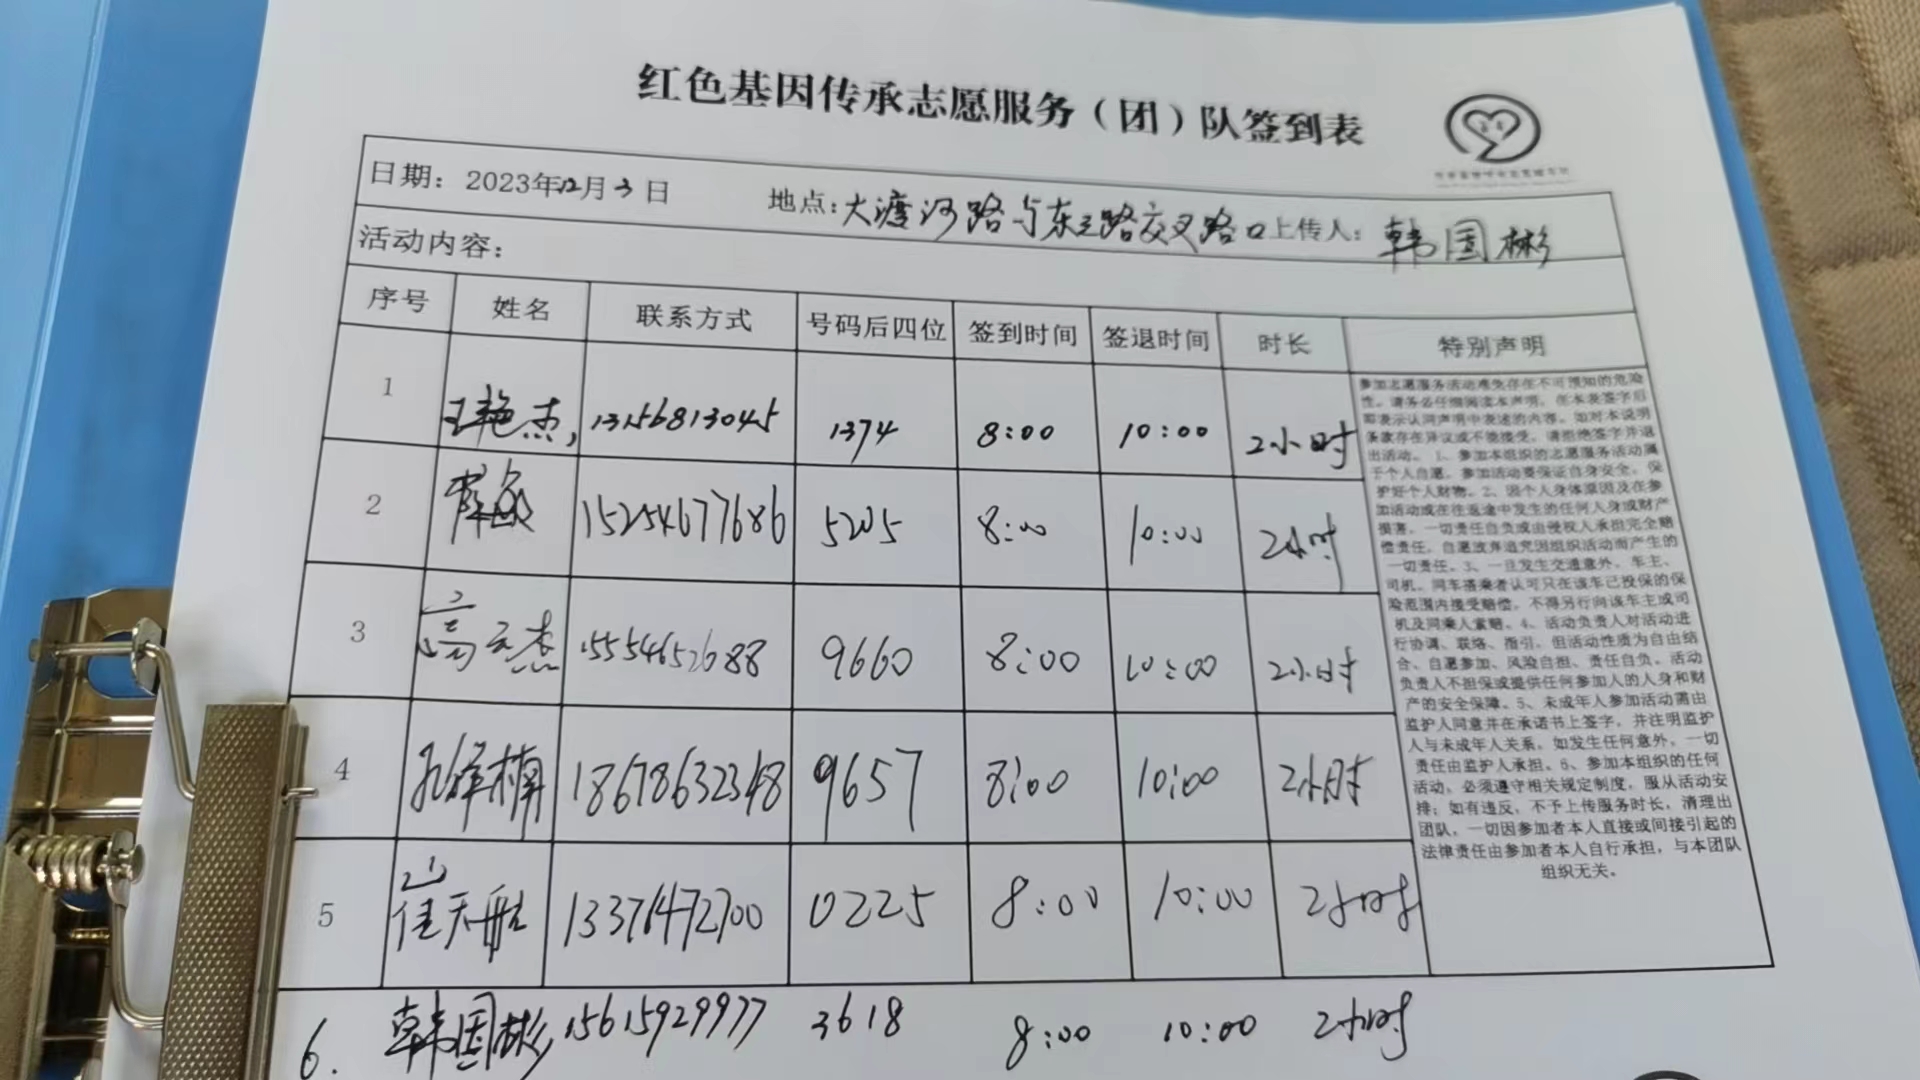 红色基因传承志愿服务（团）队签到表
日期：2023年12月3日 地点：大渡河路与东三路交叉路口 上传人：韩国彬
活动内容：
序号 姓名 联系方式 号码后四位 签到时间 签退时间 时长 特别声明
1 王艳杰, 13156813045 1374 8:00 10:00 2小时
2 15254677686 5205 8:00 10:00 2小时
3 高云杰 15554652688 9660 8:00 10:00 2小时
4 孔祥楠 18678632348 9657 8:00 10:00 2小时
5 崔天航 13371472700 0225 8:00 10:00 2小时
6. 韩国彬 15615929977 3618 8:00 10:00 2小时
参加志愿服务活动难免存在不可预知的危险
性。请务必仔细阅读本声明，在本表签字后
即表示认同声明中表述的内容。如对本说明
条款存在异议或不能接受，请拒绝签字并退
出活动。1、参加本组织的志愿服务活动属
于个人自愿，参加活动要保证自身安全，保
护好个人财物。2、因个人身体原因及在参
加活动或在往返途中发生的任何人身或财产
损害，一切责任自负或由侵权人承担完全赔
偿责任，自愿放弃追究因组织活动而产生的
一切责任。3、一旦发生交通意外，车主、
司机、同车搭乘者认可只在该车已投保的保
险范围内接受赔偿，不得另行向该车主或司
机及同乘人索赔。4、活动负责人对活动进
行协调、联络、指引，但活动性质为自由结
合、自愿参加、风险自担、责任自负。活动
负责人不担保或提供任何参加人的人身和财
产的安全保障。5、未成年人参加活动需由
监护人同意并在承诺书上签字，并注明监护
人与未成年人关系，如发生任何意外，一切
责任由监护人承担。6、参加本组织的任何
活动，必须遵守相关规定制度，服从活动安
排；如有违反，不予上传服务时长，清理出
团队。一切因参加者本人直接或间接引起的
法律责任由参加者本人自行承担，与本团队
组织无关。